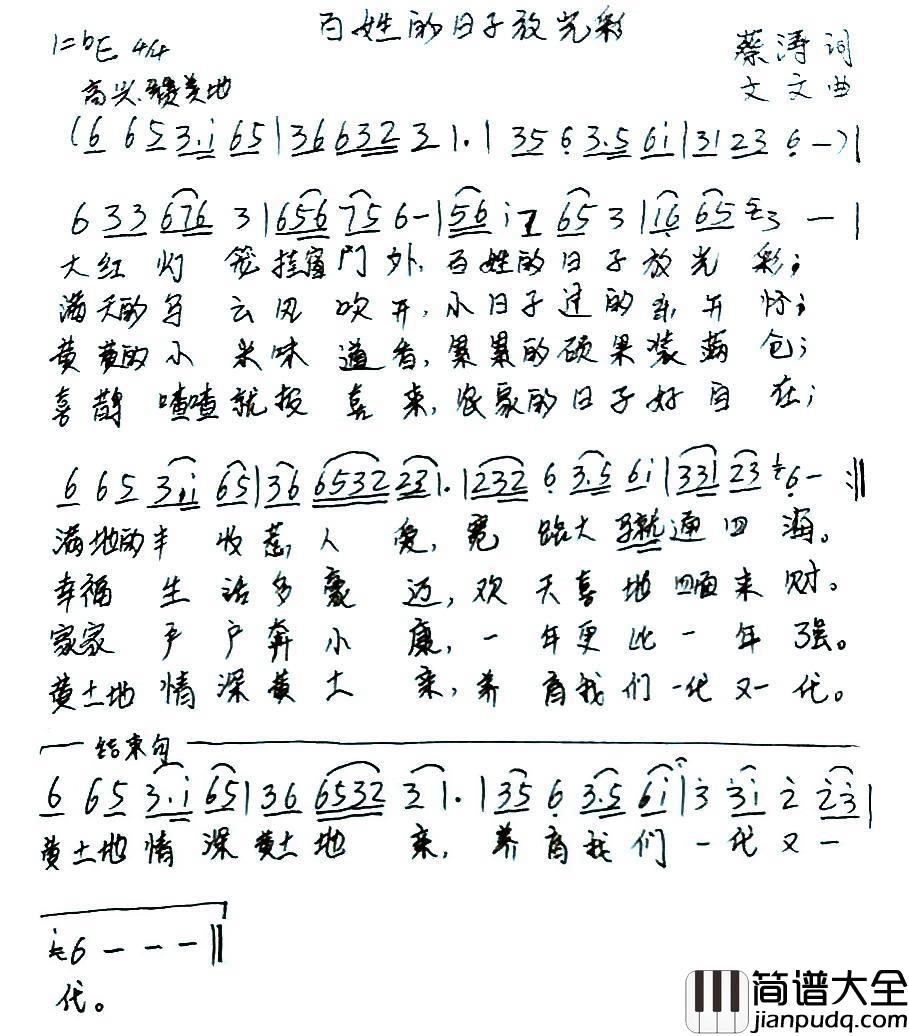 百姓的日子放光彩
1=bE 4/4
蔡涛词
高兴.赞美地
文文曲
(6 65 3.i 65|36 6532 3 1.|35 6 3.5 6i|31 23 6 —)|
6 33 676 3|656 75 6—|56 i 65 3|16 65 3 —|
大红灯笼挂窗门外,百姓的日子放光彩;
满天的乌云风吹开,小日子过的亲开怀;
黄黄的小米味道香,累累的硕果装满仓;
喜鹊喳喳就报喜来,农家的日子好自在;
6 65 3.i 65|36 6532 23 1.|232 6 3.5 6i|331 23 6—:‖
满地的丰收惹人爱,宽路大 就通四海。
幸福生活多豪迈,欢天喜地 来财。
家家 户奔小康,一年更比一年强。
黄土地情深黄土亲,养育我们一代又一代。
结束句
6 65 3.i 65|36 6532 3 1.|35 6 3.5 6i|3 3i 2 23|
黄土地情深黄土地亲,养育我们一代又一
6 — — —‖
代。
简谱大全
jianpudq.com